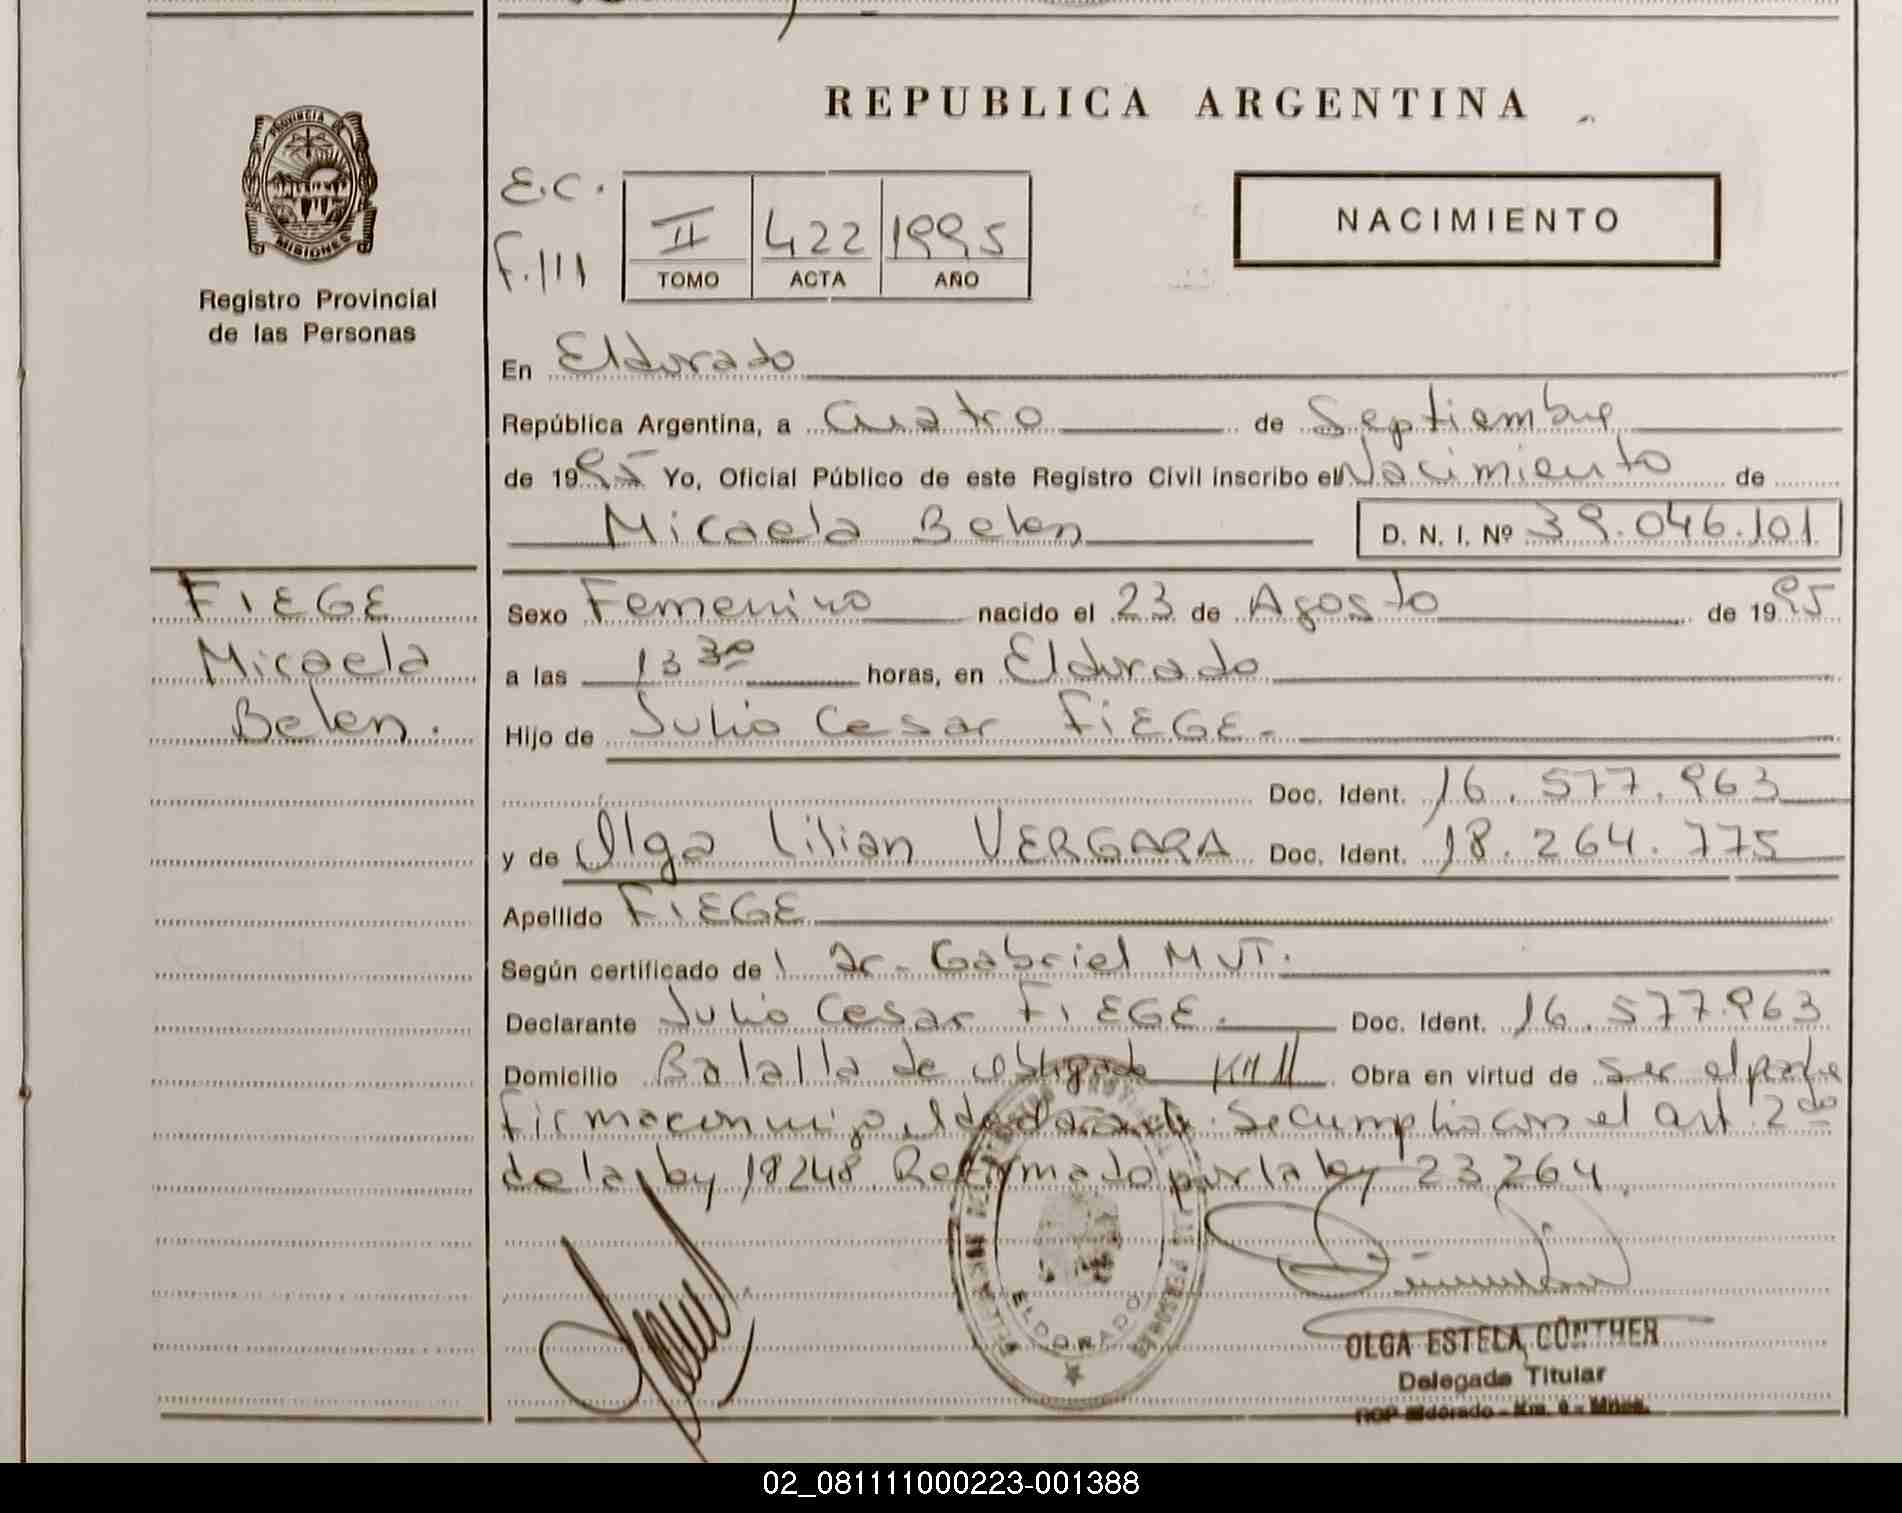 REPUBLICA ARGENTINA
PROVINCIA DE
MISIONES
Registro Provincial
de las Personas
E.C.
F. 111
II 422 1995
TOMO ACTA AÑO
NACIMIENTO
En Eldorado
República Argentina, a Cuatro de Septiembre
de 1995 Yo, Oficial Público de este Registro Civil inscribo el Nacimiento de
Micaela Belen D. N. I. Nº 39.046.101
FIEGE
Micaela
Belen.
Sexo Femenino nacido el 23 de Agosto de 1995
a las 13 30 horas, en Eldorado
Hijo de Julio Cesar FIEGE.
Doc. Ident. 16.577.963
y de Olga Lilian VERGARA Doc. Ident. 18.264.775
Apellido FIEGE
Según certificado de Dr. Gabriel MUT.
Declarante Julio Cesar FIEGE. Doc. Ident. 16.577.963
Domicilio Batalla de obligado Km 11 Obra en virtud de ser el padre
firma conmigo el declarante. Se cumplio con el art. 2do
de la ley 18248 Reformado por la ley 23264.
ELDORADO
OLGA ESTELA GÜNTHER
Delegada Titular
RCP Eldorado - Km. 9 - Mnes.
02_081111000223-001388